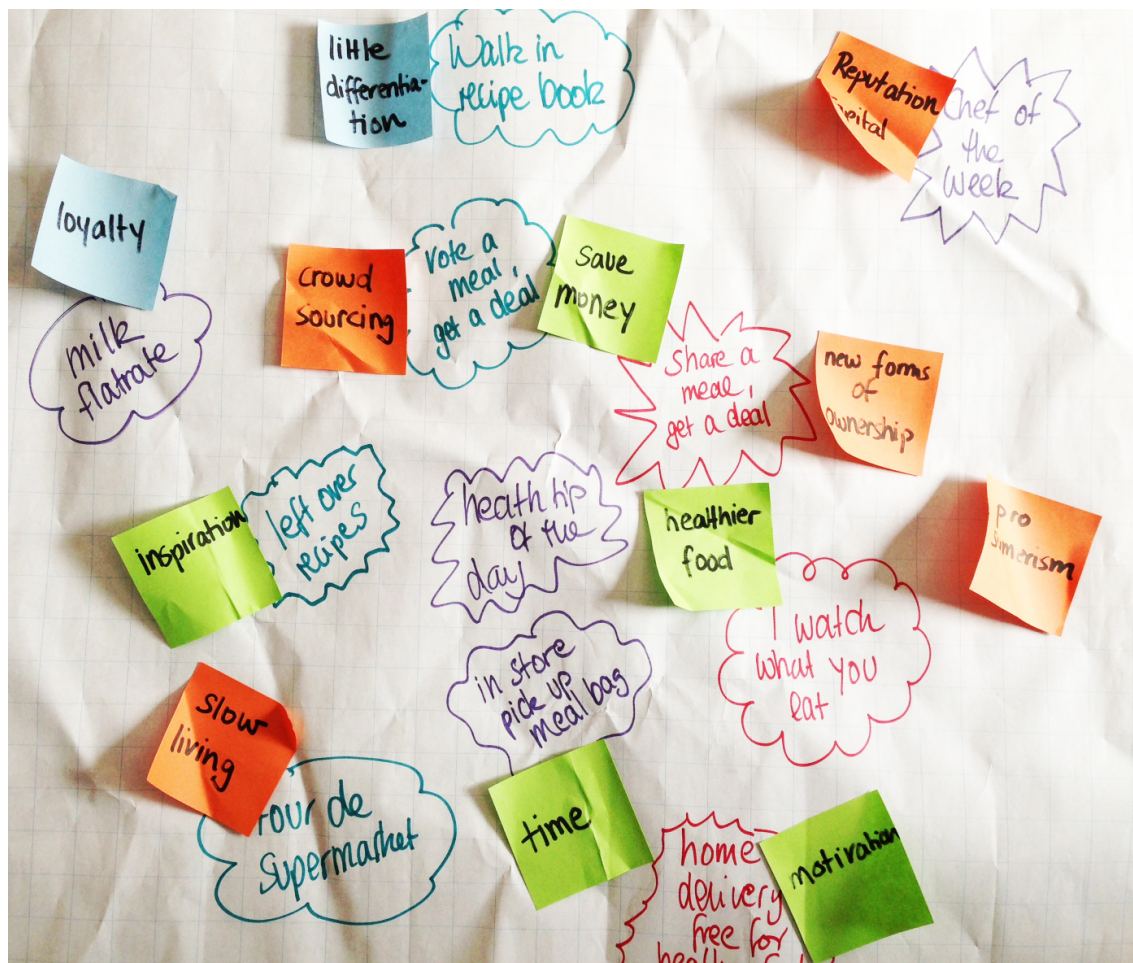 little
differentia-
tion
Walk in
recipe book
Reputation
Chef of
the
Week
loyalty
milk
flatrate
crowd
sourcing
Vote a
meal,
get a deal
save
money
Share a
meal,
get a deal
new forms
of
ownership
inspiration
left over
recipes
heath tip
of the
day
healthier
food
pro
sumerism
I watch
what you
eat
in store
pick up
meal bag
slow
living
Tour de
Supermarket
time
home
delivery
free for
motivation